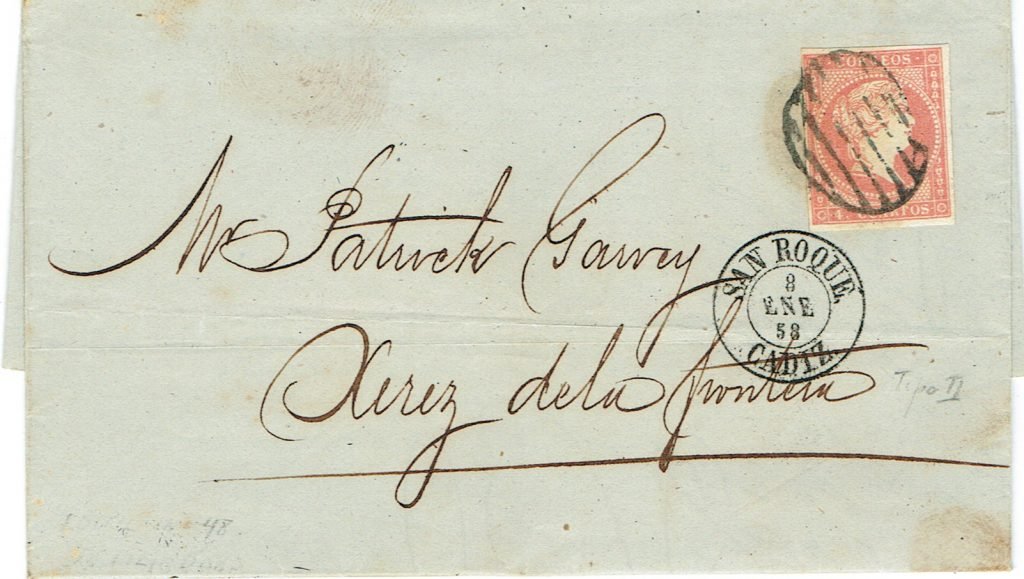 CORREOS
4 CUARTOS
Mr Patrick Garvey
SAN ROQUE
8
ENE
58
CADIZ
Xerez dela frontera
Tipo II
48